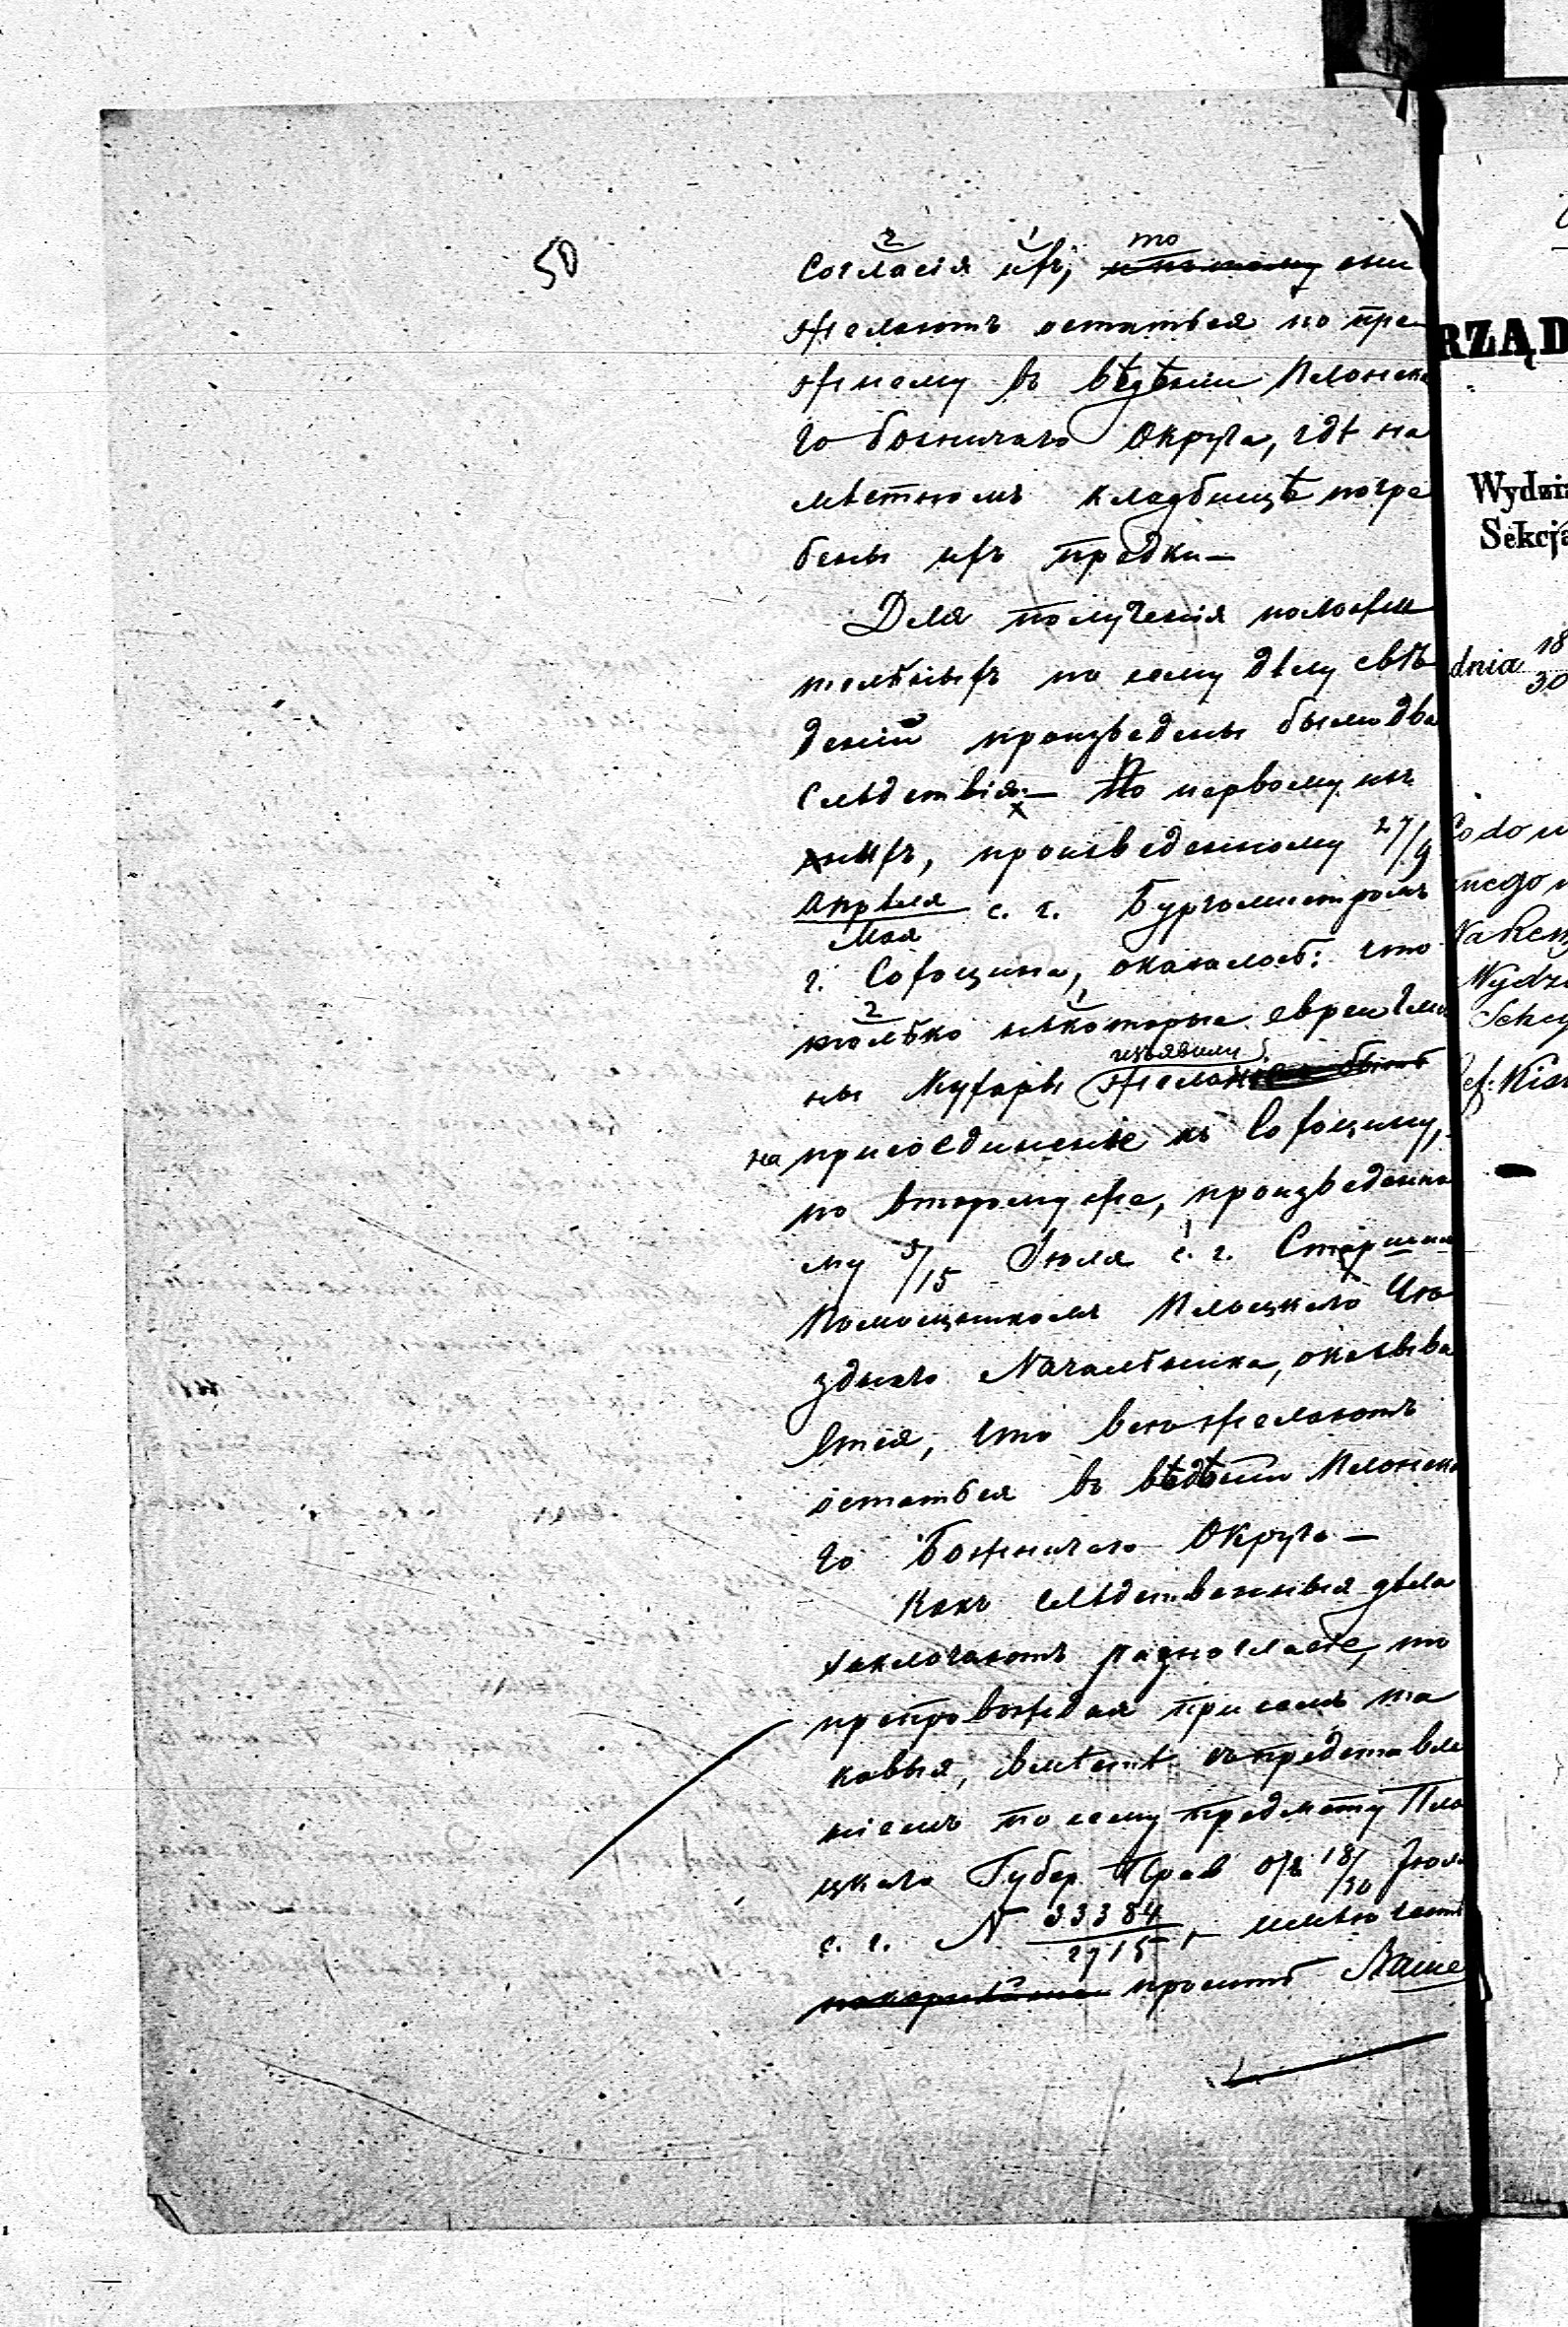 50
2 1 то
согласія ихъ, они
желаютъ остаться по пре
жнему въ вѣдѣніи Плонска
го божничаго Округа, гдѣ на
мѣстномъ кладбищѣ погре
бены ихъ предки —
Для полученія положи
тельныхъ по сему дѣлу свѣ
деній произведены были два
слѣдствія. — По первому изъ
нихъ, произведенному 27/9
Апрѣля/Мая с. г. Бургомистромъ
г. Сохоцина, оказалось: что
2 1
только нѣкоторые евреи Гми
изъявили
ны Кухары желаніе быть
на присоединеніе къ Сохоцину,
по второму же, произведенно
му 3/15 Іюля с. г. Старшим
Помощникомъ Плоцкаго Уѣ
зднаго Начальника, оказыва
ется, что всѣ желаютъ
остаться въ вѣдѣніи Плонска
го Божничаго Округа —
Какъ слѣдственныя дѣла
заключаютъ разногласіе, то
препровождая при семъ та
ковыя, вмѣстѣ съ представле
ніемъ по сему предмету Пло
цкаго Губер. Прав. отъ 18/30 Іюля
с. г. N 33384/2715, имѣю честь
покорнѣйше просить Ваше
RZĄD
Wydzia
Sekcja
dnia 18/30